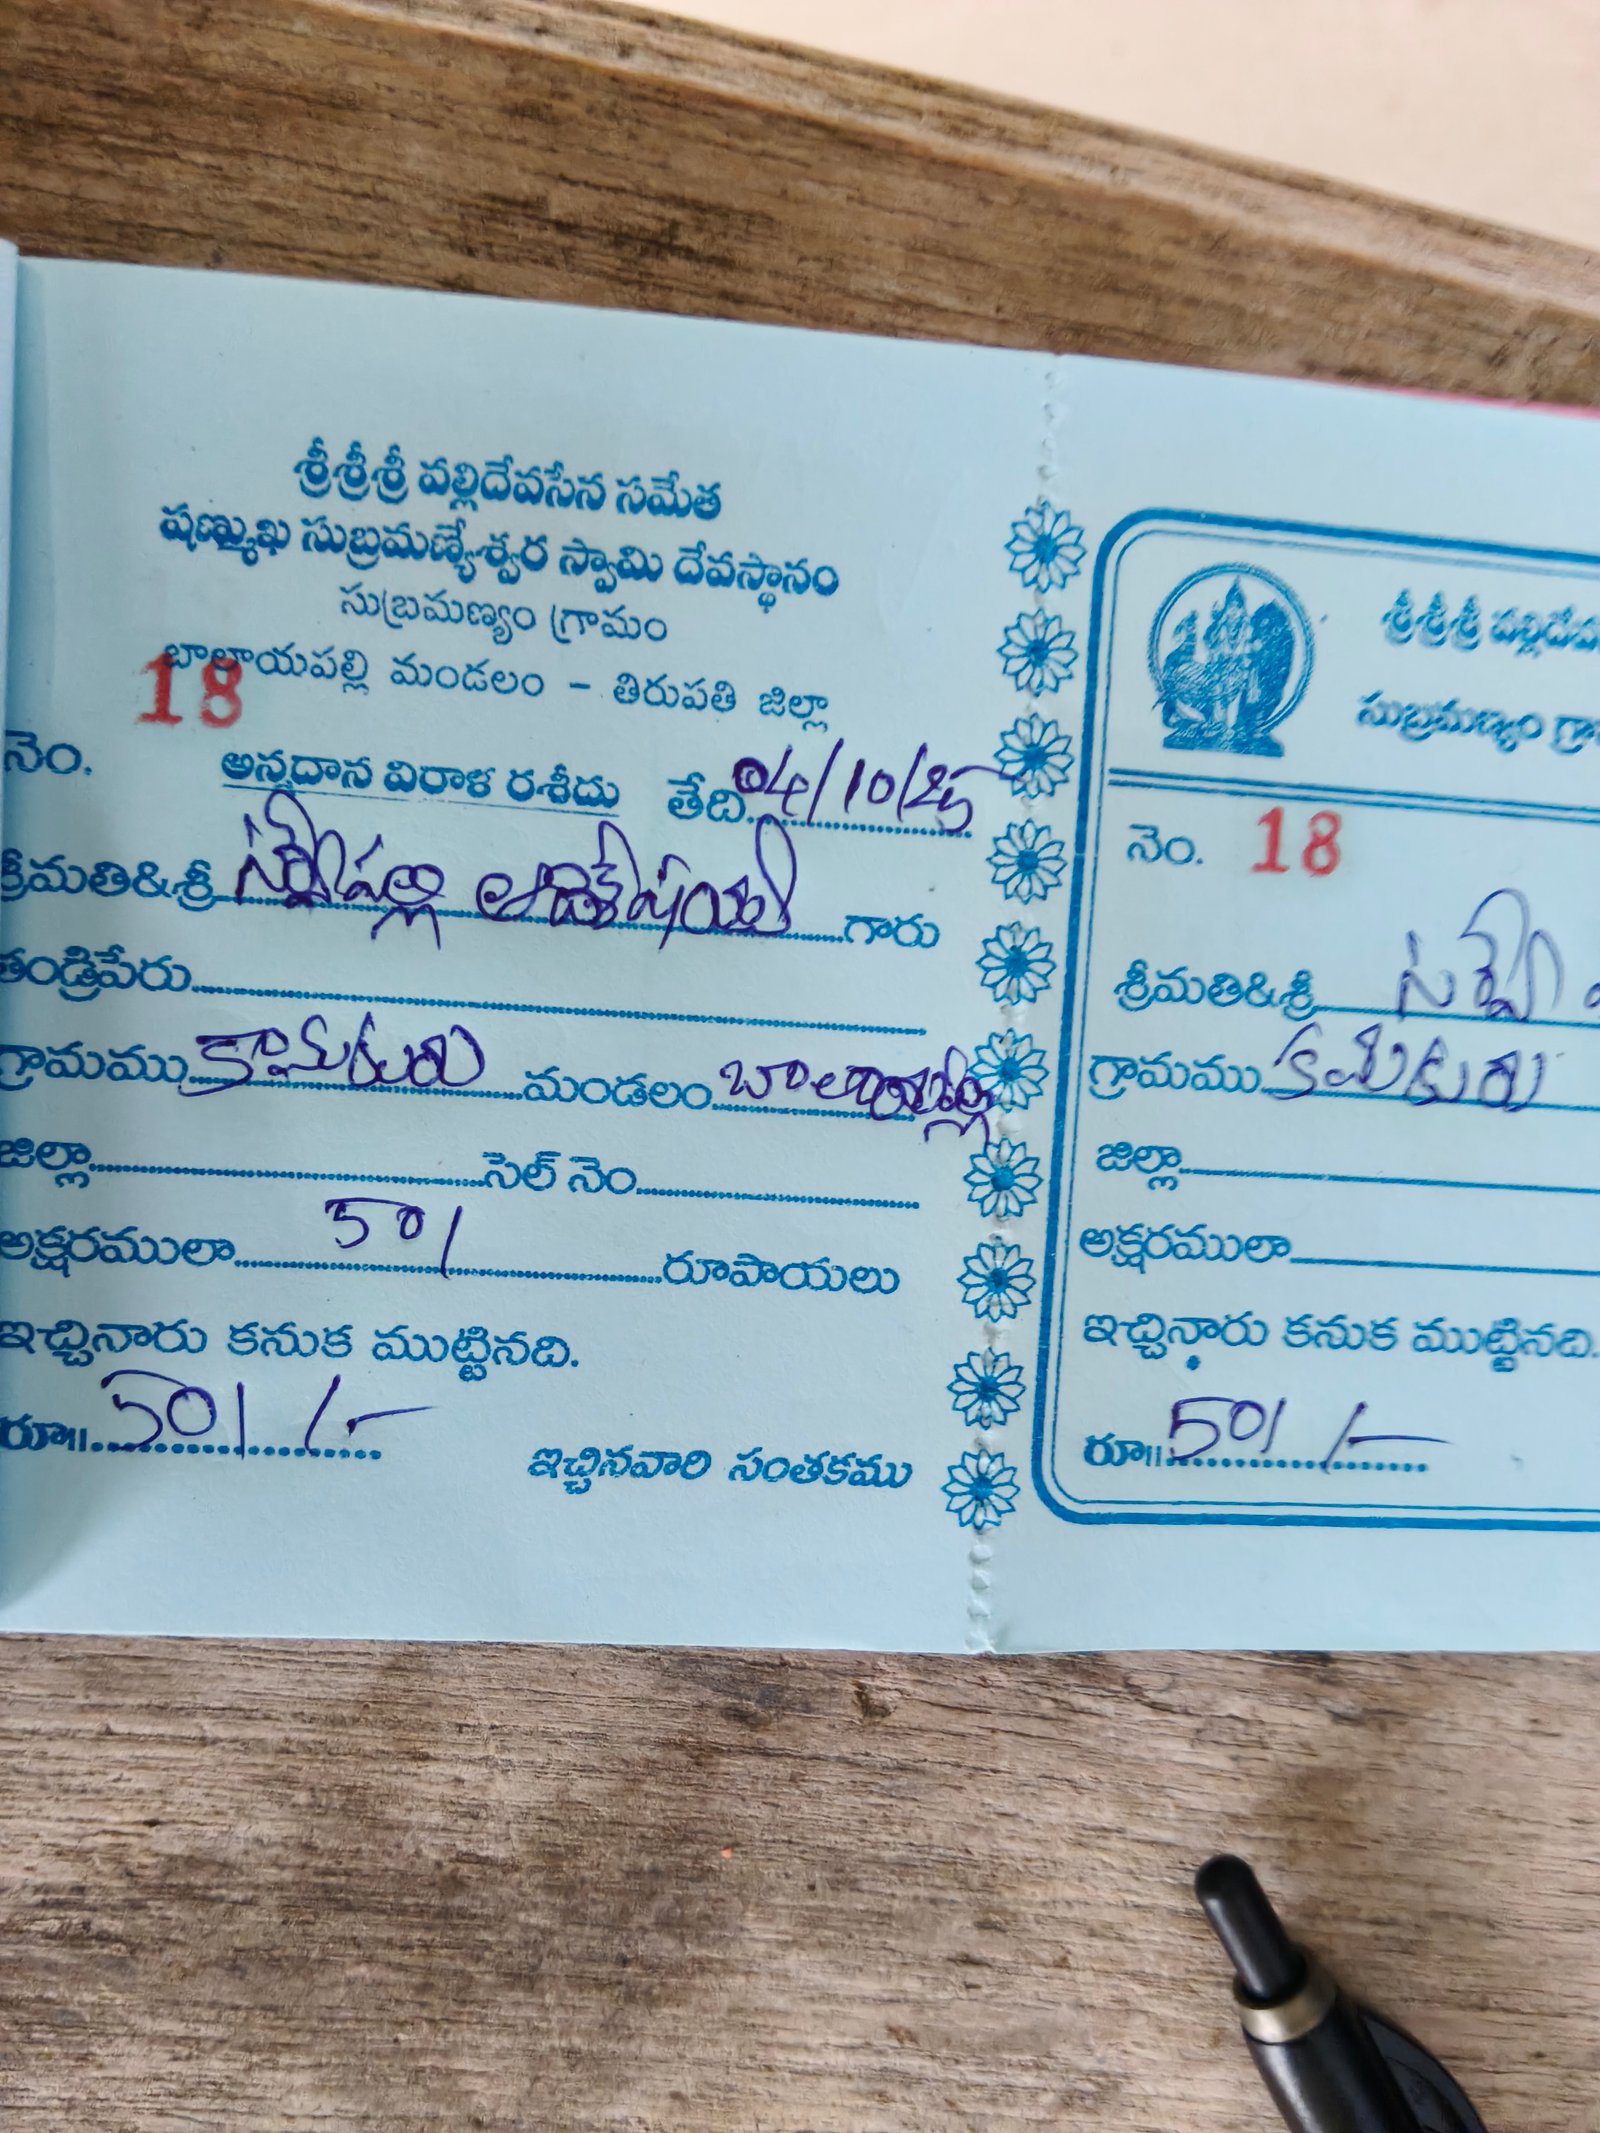 శ్రీశ్రీశ్రీ వల్లిదేవసేన సమేత
షణ్ముఖ సుబ్రమణ్యేశ్వర స్వామి దేవస్థానం
సుబ్రమణ్యం గ్రామం
బాలాయపల్లి మండలం - తిరుపతి జిల్లా
నెం. 18
అన్నదాన విరాళ రశీదు తేది. 04/10/25
శ్రీమతి&శ్రీ గారు
తండ్రిపేరు
గ్రామము మండలం బాలాయపల్లి
జిల్లా సెల్ నెం.
అక్షరములా 501 రూపాయలు
ఇచ్చినారు కనుక ముట్టినది.
రూ॥ 501/-
ఇచ్చినవారి సంతకము
శ్రీశ్రీశ్రీ
సుబ్రమణ్యం
నెం. 18
శ్రీమతి&శ్రీ
గ్రామము
జిల్లా
అక్షరములా
ఇచ్చినారు కనుక ముట్టినది.
రూ॥ 501/-